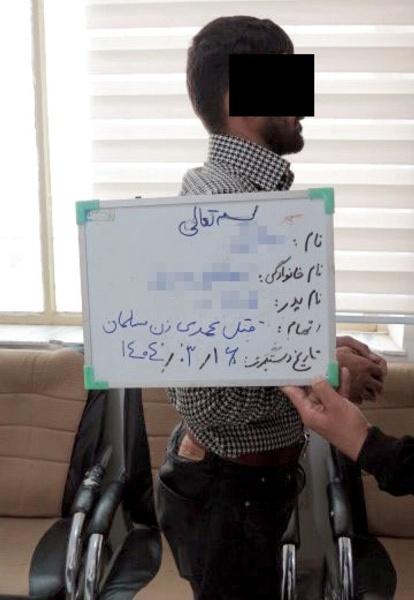 بسمه تعالی
نام:
نام خانوادگی:
نام پدر:
اتهام: قتل عمدی زن سلمان
تاریخ دستگیری: ۱۴۰۴/۰۳/۱۶